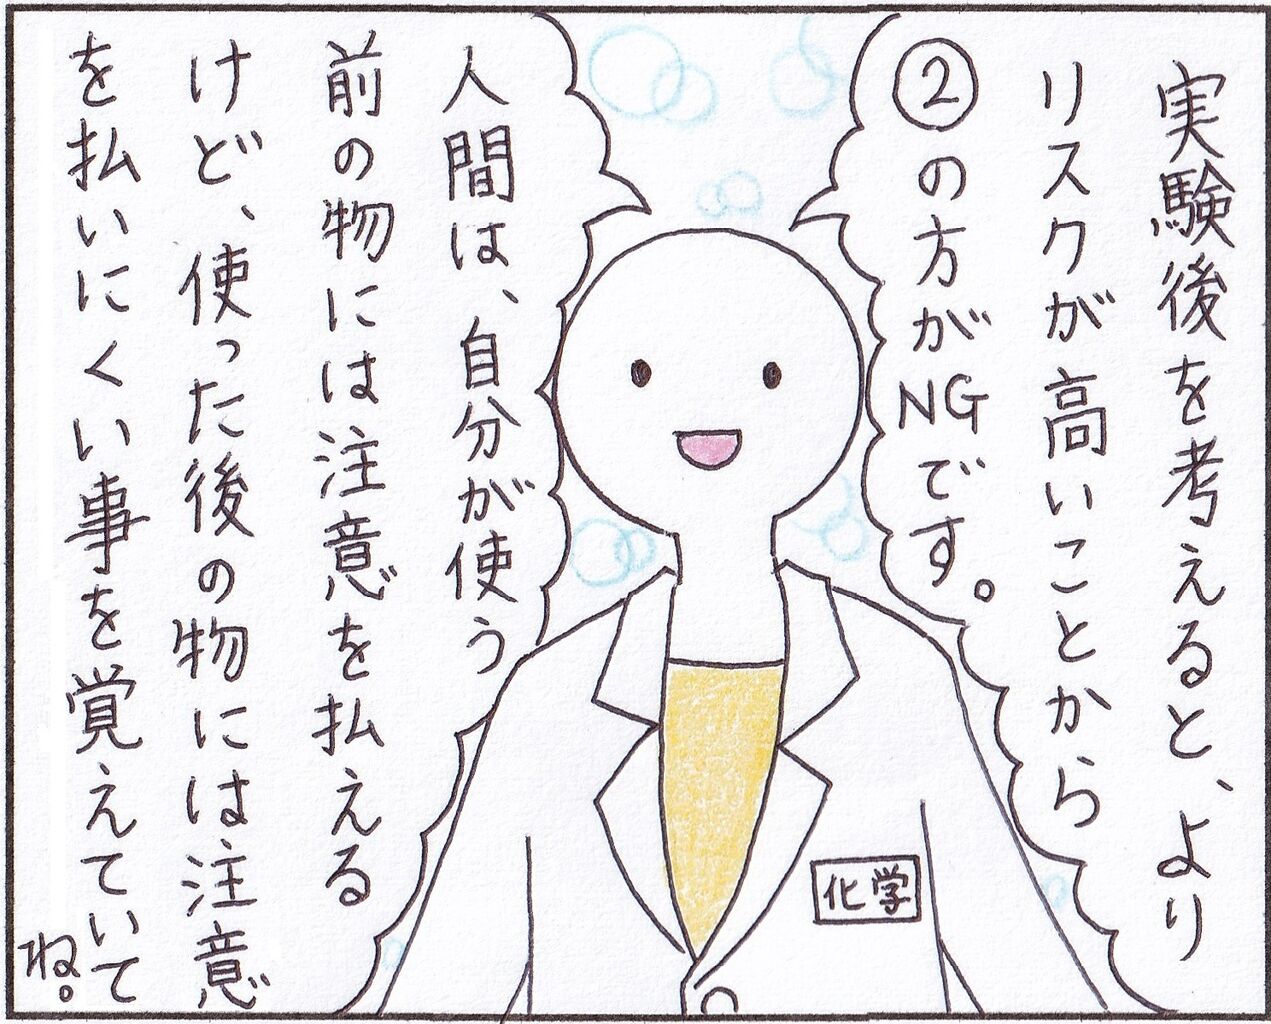 実験後を考えると、より
リスクが高いことから
②の方がNGです。
人間は、自分が使う
前の物には注意を払える
けど、使った後の物には注意
を払いにくい事を覚えていて
ね。
化学